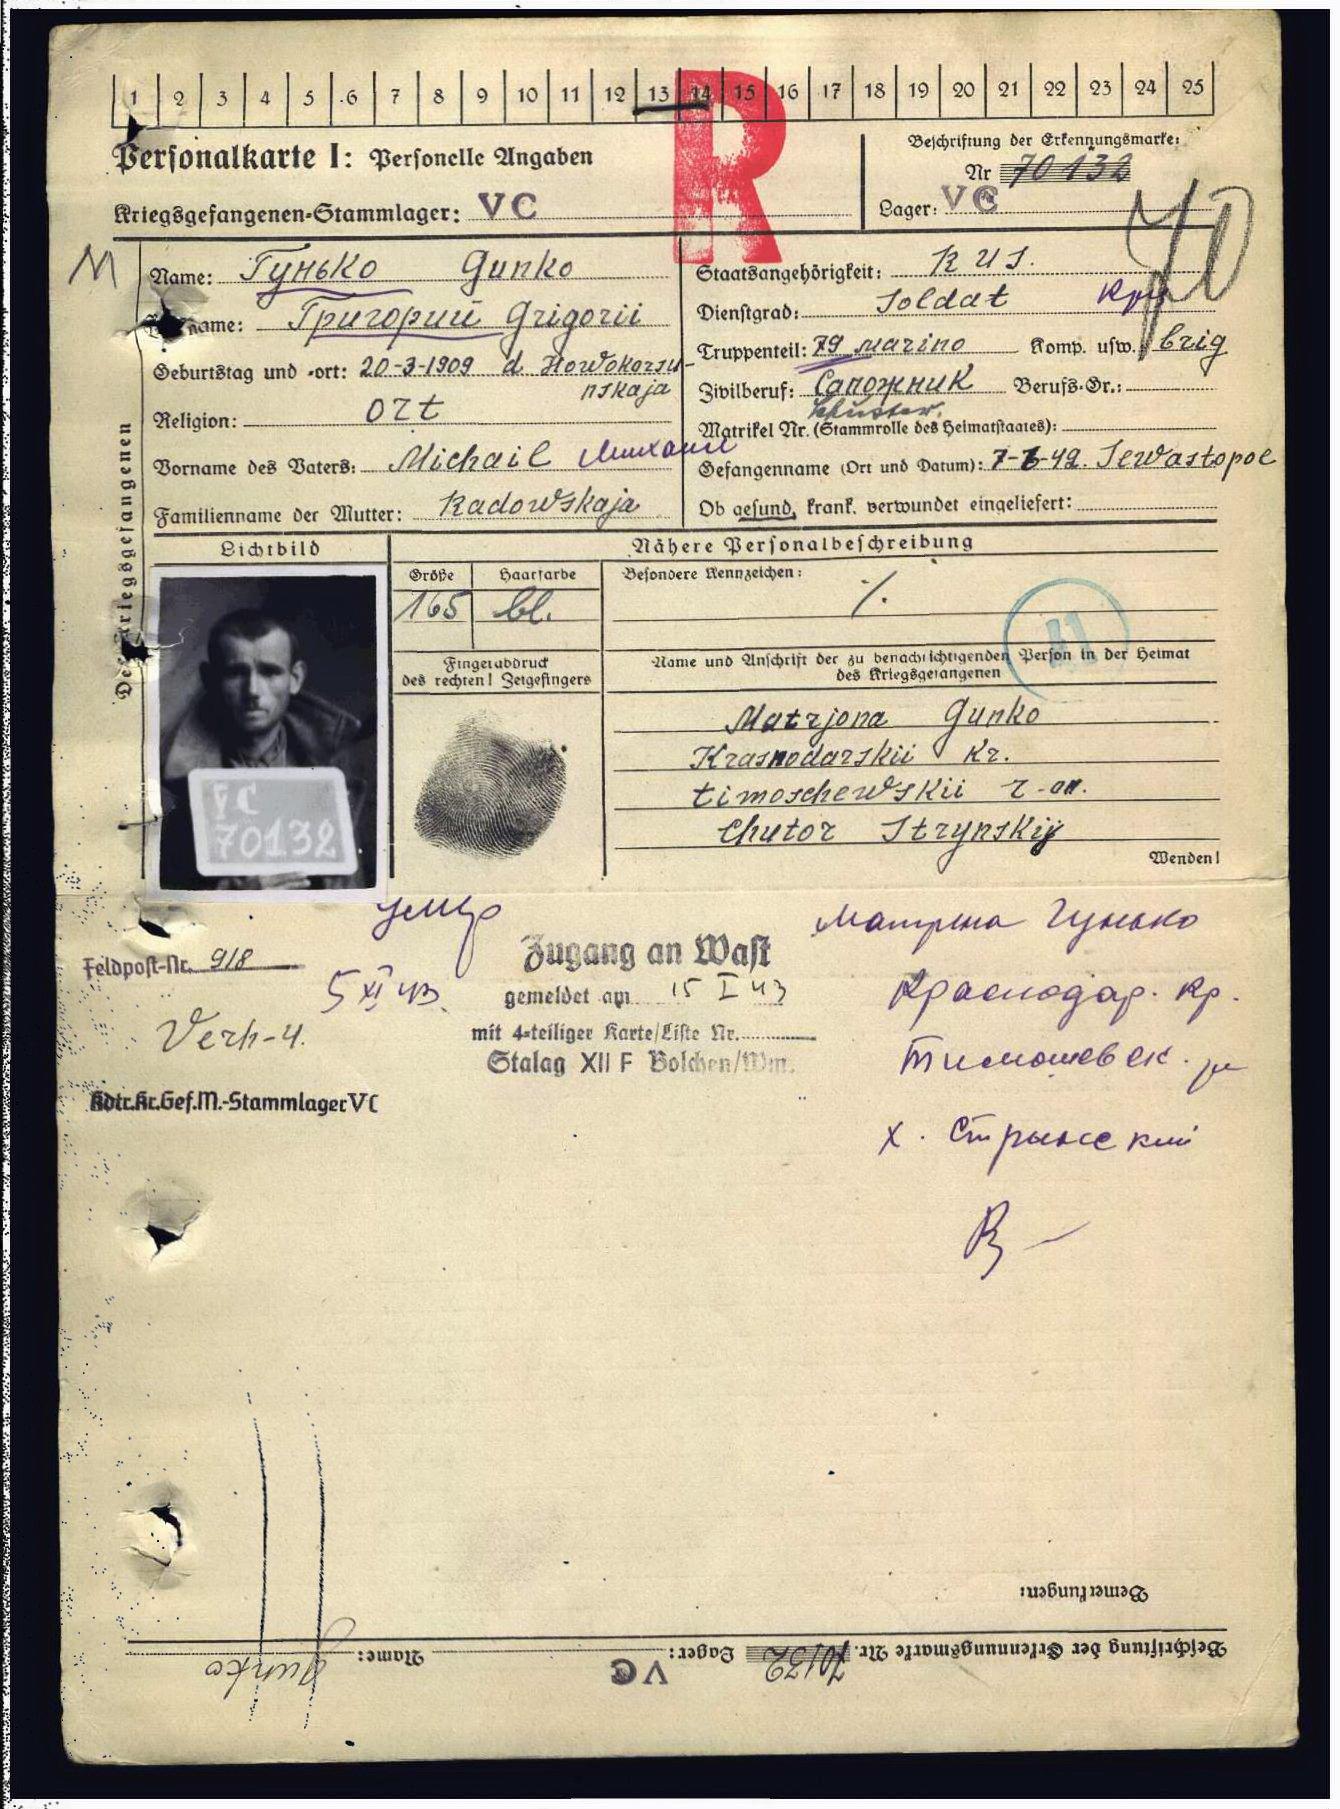 1 2 3 4 5 6 7 8 9 10 11 12 13 14 15 16 17 18 19 20 21 22 23 24 25
R
Personalkarte I: Personelle Angaben
Kriegsgefangenen-Stammlager: VC
Beschriftung der Erkennungsmarke:
Nr 70132
Lager: VC
70
M
Des Kriegsgefangenen
Name: Гунько Gunko
Vorname: Григорий Grigorii
Geburtstag und -ort: 20-3-1909 d Nowokorsu-
nskaja
Religion: ort
Vorname des Vaters: Michail Михаил
Familienname der Mutter: Radowskaja
Staatsangehörigkeit: RUS.
Dienstgrad: Soldat Кр
Truppenteil: 79 marino Komp. usw.: brig
Zivilberuf: Сапожник Berufs-Gr.:
Schuster.
Matrikel Nr. (Stammrolle des Heimatstaates):
Gefangenname (Ort und Datum): 7-7-42. Sewastopol
Ob gesund, krank, verwundet eingeliefert:
Lichtbild
VC
70132
Nähere Personalbeschreibung
Größe Haarfarbe
165 bl.
Besondere Kennzeichen:
٪.
Fingerabdruck
des rechten! Zeigefingers
Name und Anschrift der zu benachrichtigenden Person in der Heimat
des Kriegsgefangenen
Matrjona Gunko
Krasnodarskii Kr.
timoschewskii r-on.
Chutor Strynskij
Wenden!
умер
5 XI 43
Feldpost-Nr. 918
Verh-4.
Kdtr.Kr.Gef.M.-Stammlager VC
Zugang an Wast
gemeldet am 15 I 43
mit 4-teiliger Karte/Liste Nr.
Stalag XII F Bolchen/Wm.
Матрена Гунько
Краснодар. кр.
Тимошевск. рн
х. Стрынский
Bemerkungen:
Beschriftung der Erkennungsmarke Nr. 70132 Lager: VC Name: Gunko